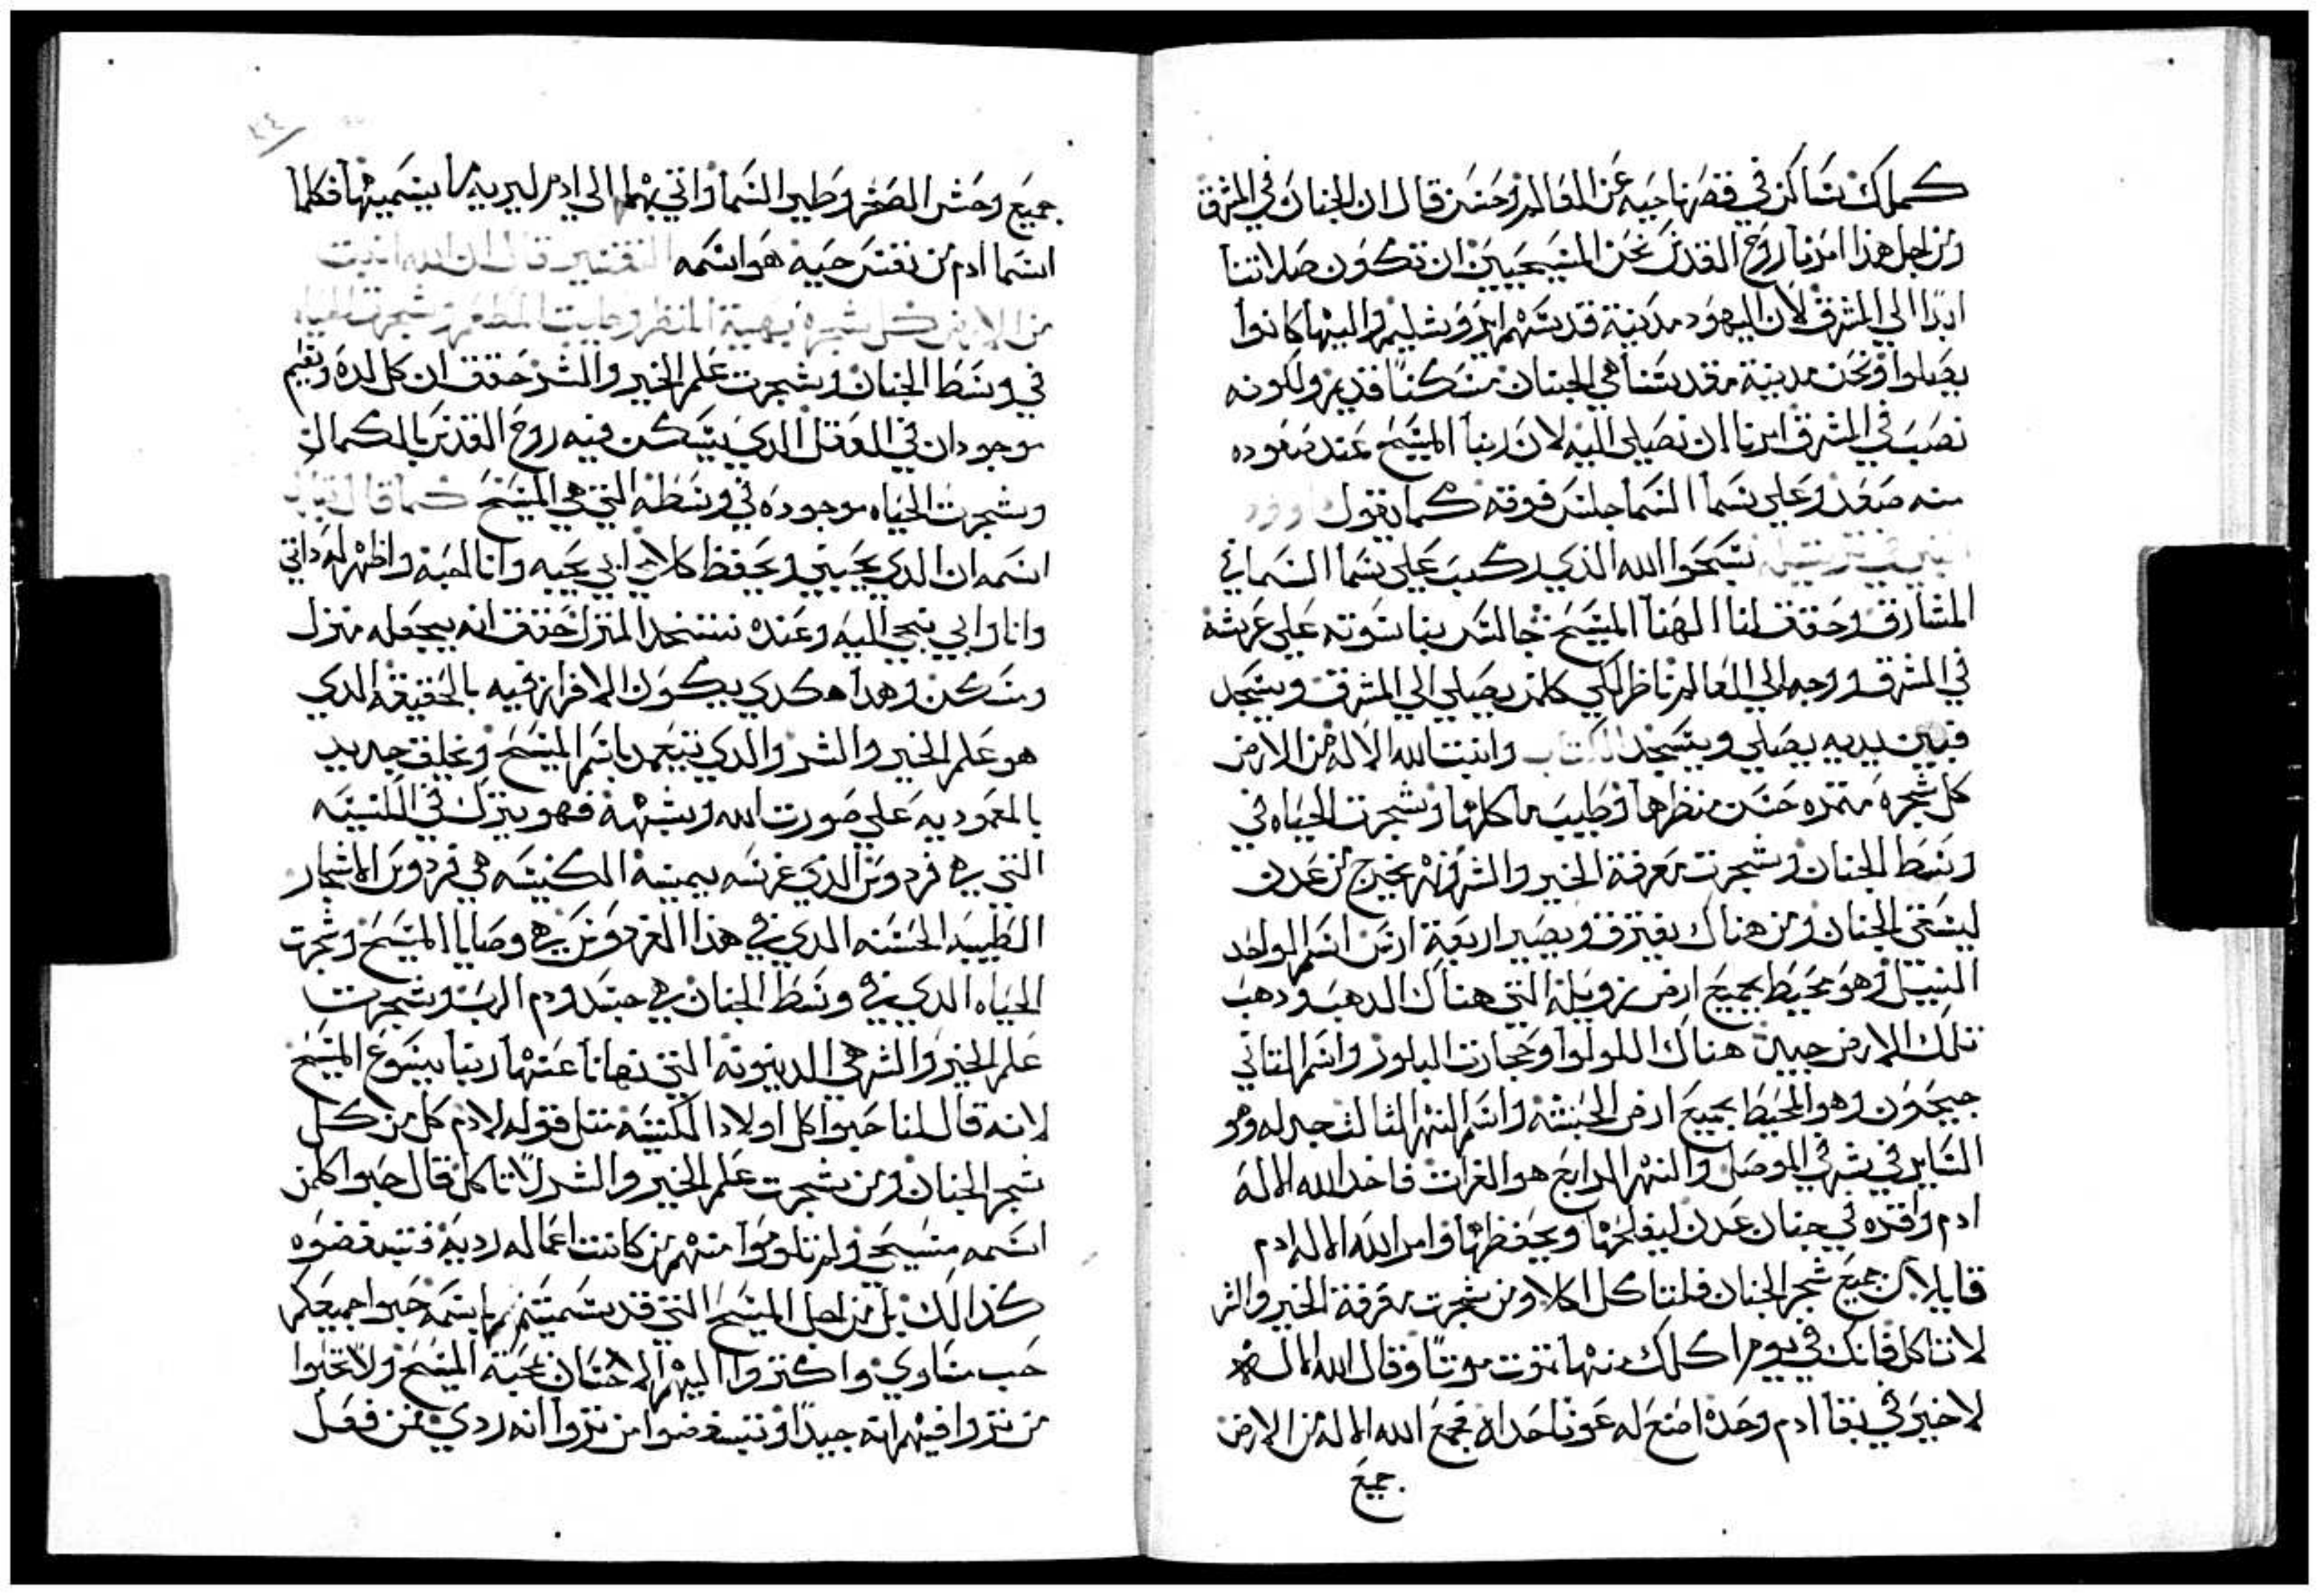 كملك ساكن في قصر ناحيه عن العالم وحسن قال ان الجنان في المشرق
ومن اجل هذا امرنا روح القدس نحن المسيحيين ان تكون صلاتنا
ابدا الي المشرق لان اليهود مدينة قدسهم ايروشليم واليها كانوا
يصلوا ونحن مدينة مقدسنا هي الجنان مسكننا قديم ولكونه
نصب في المشرق امرنا ان نصلي اليه لان ربنا المسيح عند صعوده
منه صعد وعلي سما السما جلس فوقه كما يقول داوود
النبي في ترتيله سبحوا الله الذي ركب علي سما السماي
المشارق وحقق لنا الهنا المسيح جالس بناسوته علي عرشه
في المشرق ووجه الي العالم ناظر لكي كلمن يصلي الي المشرق ويسجد
فبين يديه يصلي ويسجد الكتاب وانبت الله الاله من الارض
كل شجرة متمره حسن منظرها وطيب ماكلها وشجرت الحياه في
وسط الجنان وشجرت معرفة الخير والشر ونهر يخرج من عدن
ليسقي الجنان ومن هناك يفترق ويصير اربعة اروس اسم الواحد
النيل وهو محيط بجميع ارض زويلة التي هناك الدهب ودهب
تلك الارض جيين هناك اللولوا وحجارت البلور واسم التاني
جيحون وهو المحيط بجميع ارض الحبشه واسم النهر التالت جدله وهو
الساير في شرقي الموصل والنهر الرابع هو الفرات فاخد الله الاله
ادم واقره في جنان عدن ليفلحها ويحفظها وامر الله الاله ادم
قايلا من جميع شجر الجنان فلتاكل اكلا ومن شجرت معرفة الخير والشر
لا تاكل فانك في يوم اكلك منها تموت موتا وقال الله الاله
لا خير في بقا ادم وحده اصنع له عونا حداه فجمع الله الاله من الارض
جميع
٤٤
جميع وحش الصخر وطير السما واتي بهما الي ادم ليريه ما يسميها فكلما
اسما ادم من نفس حيه هو اسمه التفسير قال ان الله انبت
من الارض كل شجرة بهية المنظر وطيبت المطعم وشجرت الحياه
في وسط الجنان وشجرت علم الخير والشر حقق ان كل لدة ونعيم
موجودان في العقل الدي يسكن فيه روح القدس بالكمال
وشجرت الحياه موجوده في وسطه التي هي المسيح كما قال
اسمه ان الدي يحبني ويحفظ كلامي ابي يحبه وانا احبه واظهر له داتي
وانا وابي نجي اليه وعنده نتخد المنزل حقق انه يجعله منزل
ومسكن وهدا هكدي يكون الافراز فيه بالحقيقه الدي
هو علم الخير والشر والدي يتعمد باسم المسيح ويخلق جديد
بالمعموديه علي صورت الله وشبهه فهو يترك في الكنيسه
التي هي فردوس الذي غرسه بيمينه الكنيسه هي فردوس الاشجار
الطيبه الحسنه الدي في هذا الفردوس هي وصايا المسيح وشجرت
الحياه الدي في وسط الجنان هي جسد ودم الرب وشجرت
علم الخير والشر هي الدينونه التي نهانا عنها ربنا يسوع المسيح
لانه قال لنا حبوا كل اولاد الكنيسه متل قوله لادم كل من كل
شجر الجنان ومن شجرت علم الخير والشر لا تاكل قال حبوا كلمن
اسمه مسيحي ولم تلوموا منهم من كانت اعماله رديه فتبغضوه
كذالك بل من اجل المسيح التي قد تسميتم باسمه حبوا جميعكم
حب متساوي واكتروا اليهم الاحسان بمحبة المسيح ولا تخلوا
من تروا فيهم انه جيدا وتبغضوا من تروا انه ردي فمن فعل